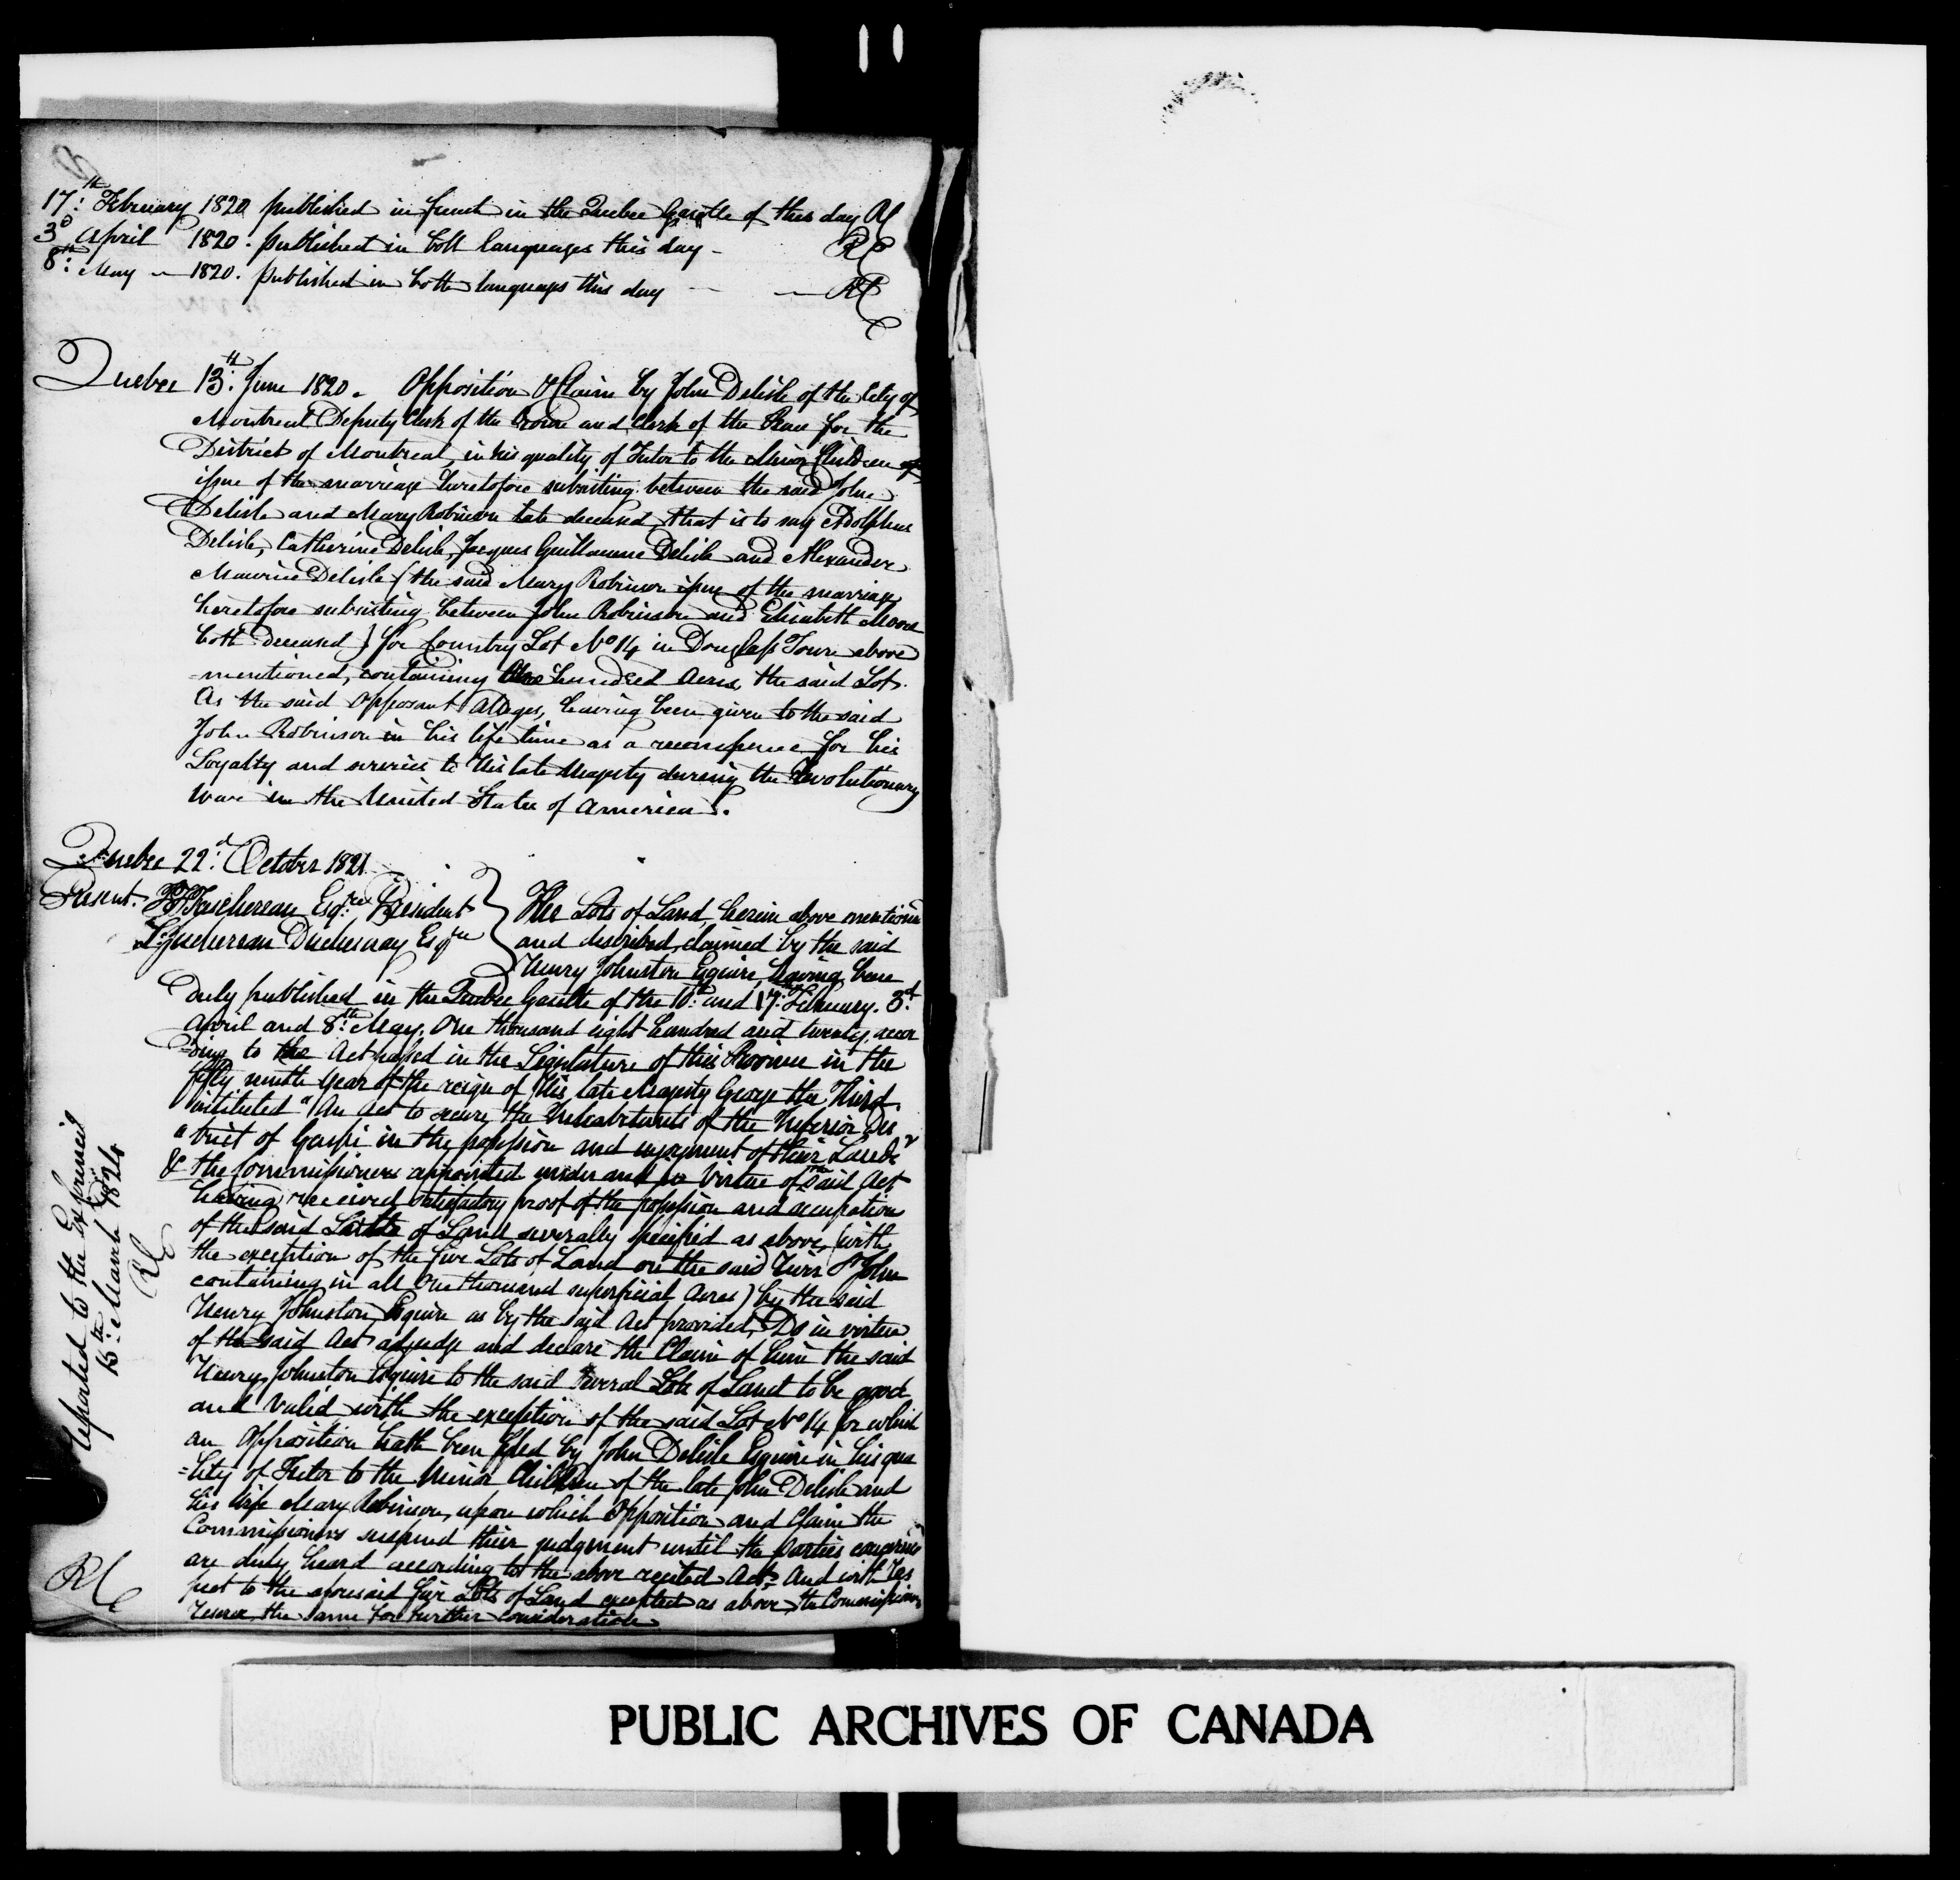 17th February 1820 published in french in the Quebec Gazette of this day RC
3d April 1820. published in both languages this day - RC
8th May - 1820. published in both languages this day - RC
Quebec 13th June 1820. Opposition & Claim by John Delisle of the City of
Montreal Deputy Clerk of the Crown and Clerk of the Peace for the
District of Montreal, in his quality of Tutor to the Minor Children
issue of the marriage heretofore subsisting between the said John
Delisle and Mary Robinson late deceased, that is to say Adolphus
Delisle, Catherine Delisle, Jacques Guillaume Delisle and Alexander
Maurice Delisle (the said Mary Robinson issue of the marriage
heretofore subsisting between John Robinson and Elisabeth Moore
both deceased) for Country Lot No 14 in Douglass Town above
=mentioned, containing hundred Acres, the said Lot.
As the said Opposant Alleges, having been given to the said
John Robinson in his life time as a recompence for his
Loyalty and services to His late Majesty during the Revolutionary
War in the United States of America.
Quebec 22d October 1821
Present. Taschereau Esqre President } The Lots of Land, herein above mentioned
Juchereau Duchesnay Esqre } and described, claimed by the said
Henry Johnston Esquire, having been
duly published in the Quebec Gazette of the 10th and 17th February. 3d
April and 8th May. One thousand eight hundred and twenty, accor
=ding to the Act passed in the Legislature of this Province in the
fifty ninth Year of the reign of His late Majesty George the Third
intituled "An Act to secure the Inhabitants of the Inferior Dis
"trict of Gaspé in the possession and enjoyment of their Lands"
& the Commissioners appointed under and in Virtue of the said Act
having received satisfactory proof of the possession and occupation
of the said Lotts of Land severally specified as above, (with
the exception of the five Lots of Land on the said River St John
containing in all One thousand superficial Acres) by the said
Henry Johnston, Esquire as by the said Act provided, Do in virtue
of the said Act adjudge and declare the Claim of him the said
Henry Johnston Esquire to the said several Lots of Land to be good
and valid with the exception of the said Lot No 14 for which
an Opposition hath been filed by John Delisle Esquire in his qua
=lity of Tutor to the Minor Children of the late John Delisle and
his Wife Mary Robinson, upon which Opposition and Claim the
Commissioners suspend their judgment until the parties concerned
are duly heard according to the above recited Act: And with res
pect to the aforesaid five Lots of Land excepted as above, the Commissioners
reserve the same for further Consideration
Reported to the Executive
15th March 1824
RC
RC
PUBLIC ARCHIVES OF CANADA